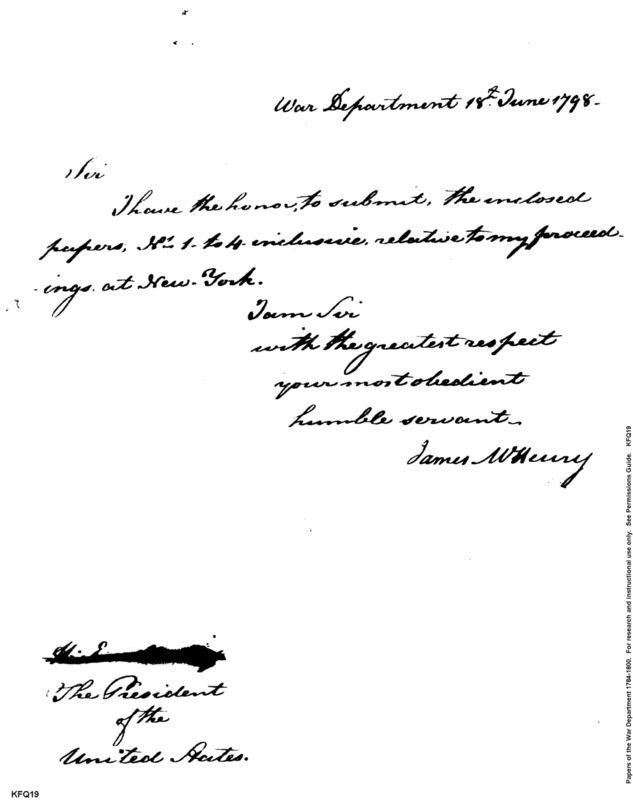 War Department 18th. June 1798.
Sir
I have the honor, to submit, the inclosed
papers, Nos. 1. to 4. inclusive, relative to my proceed-
-ings. at New-York.
I am Sir
with the greatest respect
your most obedient
humble servant.
James McHenry
The President
of the
United States.
KFQ19
Papers of the War Department 1784-1800. For research and instructional use only. See Permissions Guide. KFQ19